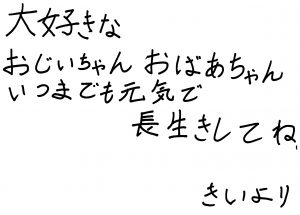 大好きな
おじいちゃん おばあちゃん
いつまでも元気で
長生きしてね
きいより